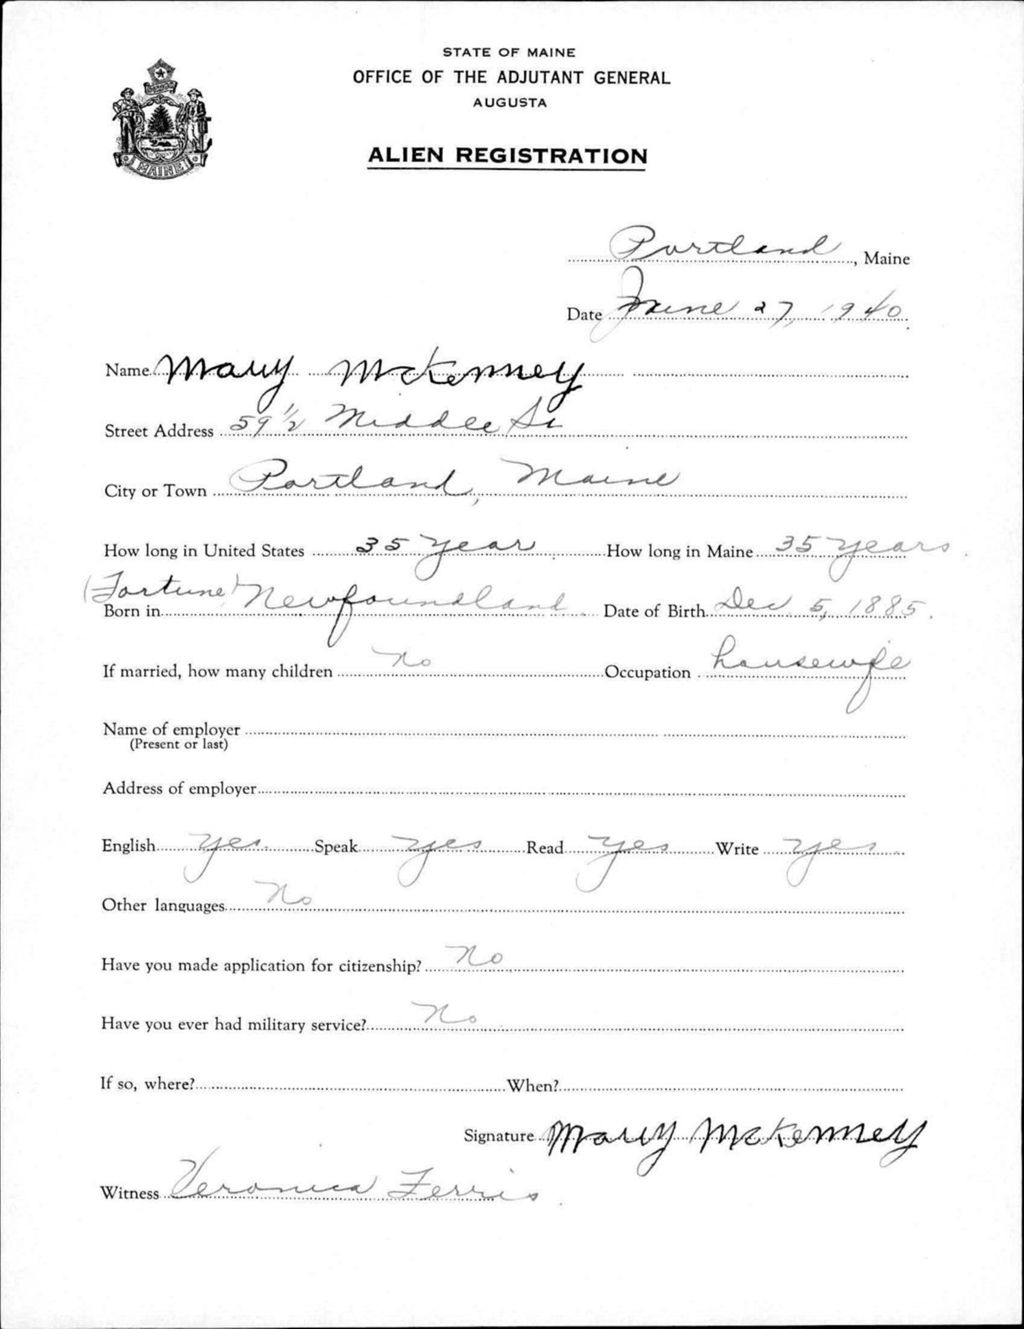 STATE OF MAINE
OFFICE OF THE ADJUTANT GENERAL
AUGUSTA
ALIEN REGISTRATION
MAINE
Portland, Maine
Date June 27, 1940
Name Mary McKenney
Street Address 59 1/2 Middle St
City or Town Portland, Maine
How long in United States 35 year How long in Maine 35 years.
Born in (Fortune) Newfoundland. Date of Birth Dec 5, 1885.
If married, how many children no Occupation housewife
Name of employer
(Present or last)
Address of employer
English yes. Speak yes Read yes Write yes
Other languages No
Have you made application for citizenship? No
Have you ever had military service? No
If so, where? When?
Signature Mary McKenney
Witness Veronica Ferris.